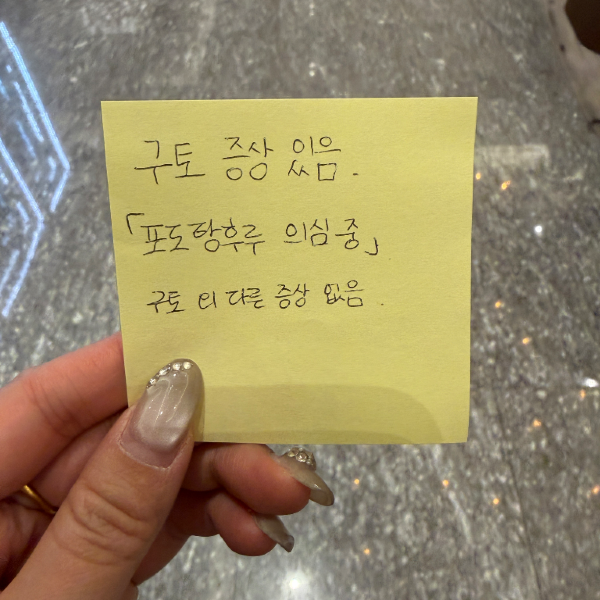 구토 증상 있음.
「포도탕후루 의심 중」
구토 외 다른 증상 없음.